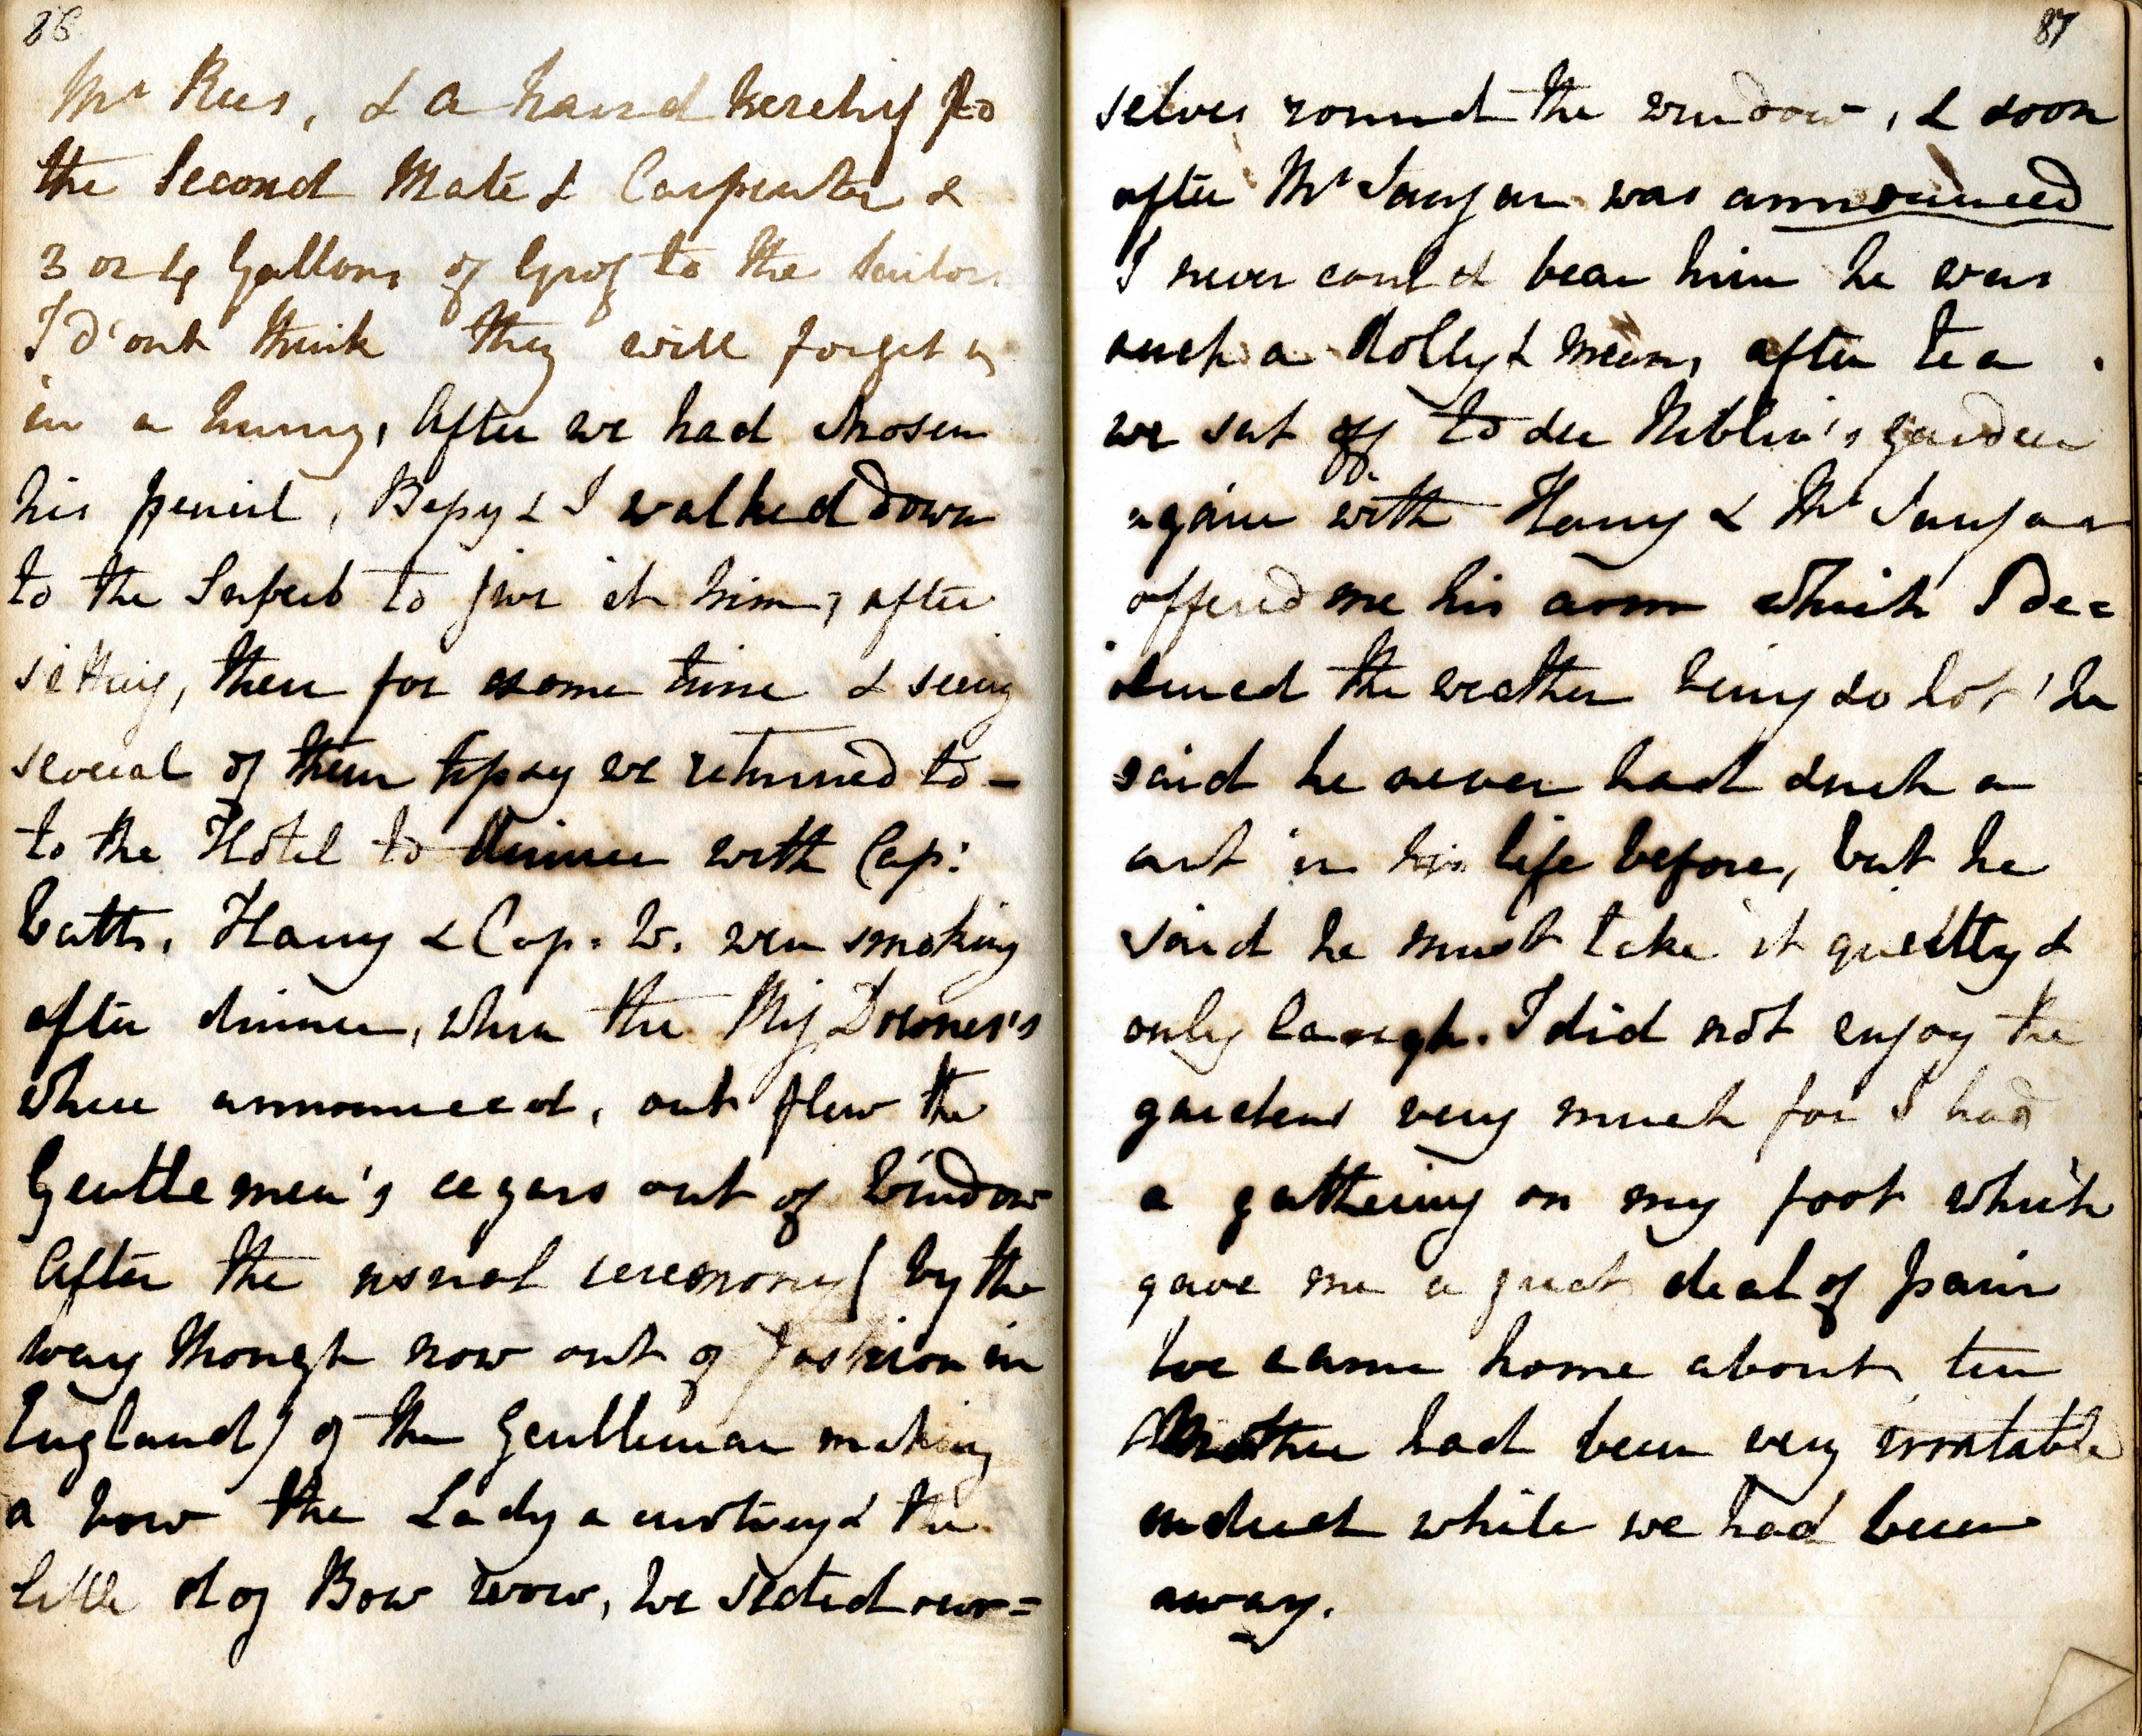 86
Mr Rees, & a hand kerchif to
the Second Mate & Carpenter &
3 or 4 Gallons of Grog to the Sailors
I d'ont think they will forget us
in a hurry, After we had chosen
his pencil, Bessy & I walked down
to the Superb to give it him, after
sitting, there for some time & seeing
several of them tipsy we returned to -
to the Hotel to dinner with Cap:
Watts. Harry & Cap. W. wen smoking
after dinner, when the Mis Downes's
where announced, out flew the
Gentlemen's cegars out of Window
After the usual ceremony ( by the
way though now out of fashion in
England) of the Gentleman making
a bow the Lady a curtsey & the
little dog Bow wow, We seated our=
87
selves round the window, & soon
after Mr was announced
I never could bear him he was
such a dolly & mean, after tea
we sat off to see Niblin's garden
again with Harry & Mr
offered me his arm which I de=
clined the weather being so hot, he
said he never had such a
cut in his life before, but he
said he must take it quietly &
only laugh. I did not enjoy the
gardens very much for I had
a gathering on my foot which
gave me a great deal of pain
We came home about ten
Mother had been very irratable
indeed while we had been
away.